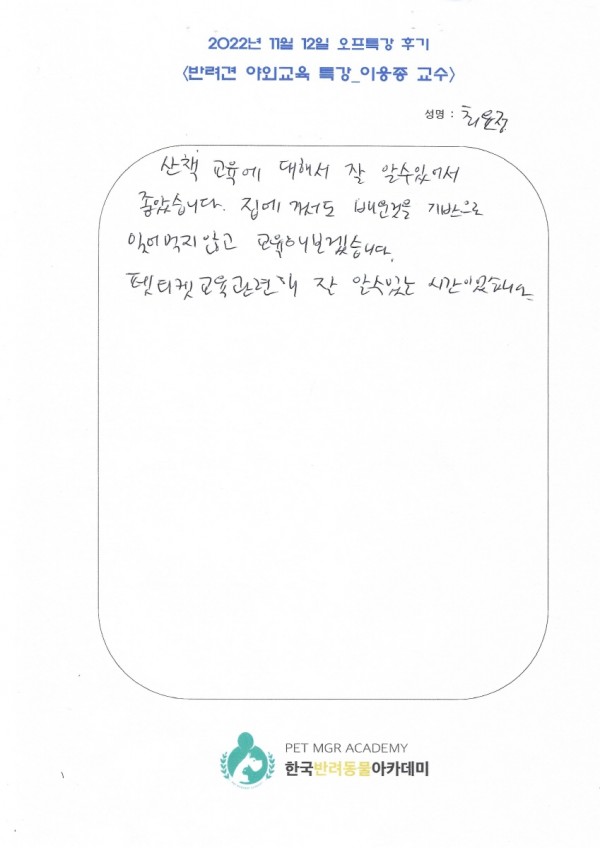 2022년 11월 12일 오프특강 후기
<반려견 야외교육 특강_이웅종 교수>
성명 : 최윤정
산책 교육에 대해서 잘 알수있어서
좋았습니다. 집에 가서도 배운것을 기반으로
잊어먹지않고 교육해보겠습니다.
펫티켓교육관련해 잘 알수있는 시간이었습니다
PET MGR ACADEMY
한국반려동물아카데미